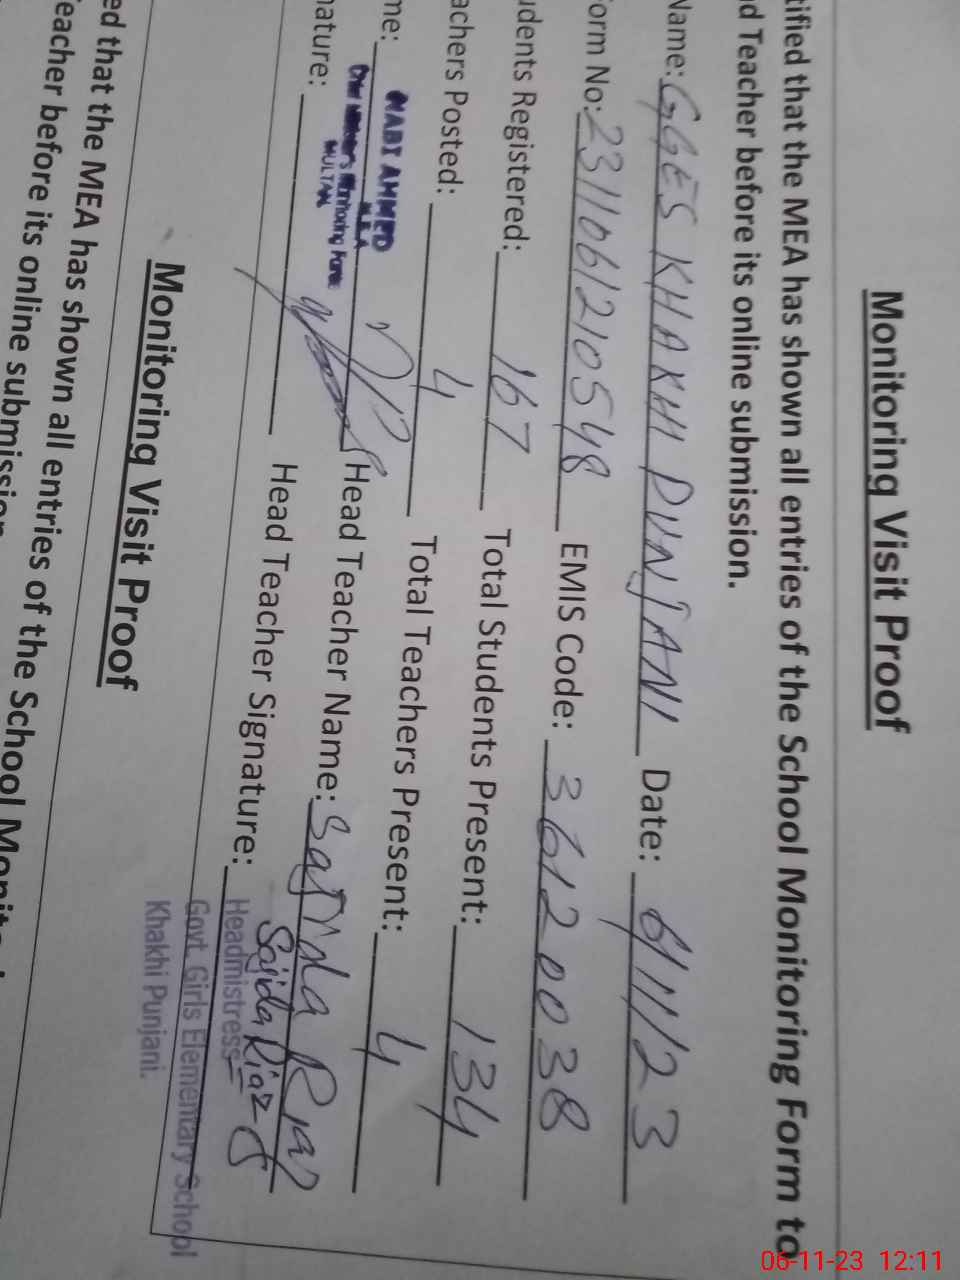 Monitoring Visit Proof
tified that the MEA has shown all entries of the School Monitoring Form to
d Teacher before its online submission.
Name: GGES KHAKHI PUNJANI Date: 6/11/23
orm No: 2311061210548 EMIS Code: 36120038
udents Registered: 167 Total Students Present: 134
achers Posted: 4 Total Teachers Present: 4
me: NABI AHMED Head Teacher Name: Sajida Riaz
M.E.A
Chief Minister's Monitoring Force
MULTAN
nature: Head Teacher Signature: Sajida Riaz
Headmistress
Govt. Girls Elementary School
Khakhi Punjani.
Monitoring Visit Proof
ed that the MEA has shown all entries of the School Monitoring
Teacher before its online submission
06-11-23 12:11